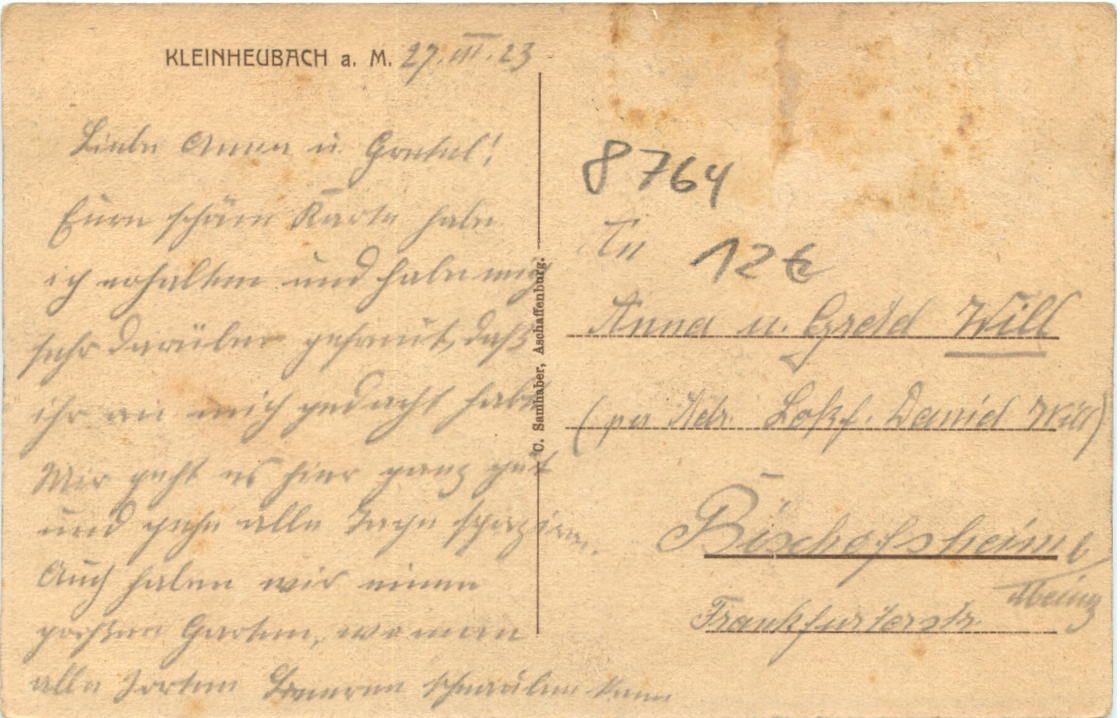 KLEINHEUBACH a. M. 27. III. 23
Liebe Anna u Gretel!
Eure schöne Karte habe
ich erhalten und habe mich
sehr darüber gefreut, daß
ihr an mich gedacht habt
Mir geht es hier ganz gut
und gehe alle Tage spazieren.
Auch haben wir einen
großen Garten, wo man
alle Sorten Beeren schnabulieren kann
C. Samhaber, Aschaffenburg.
8764
An
12 €
Anna u. Greta Will
(per Adr. Lokf. David Will)
Bischofsheim b
Mainz
Frankfurterstr.